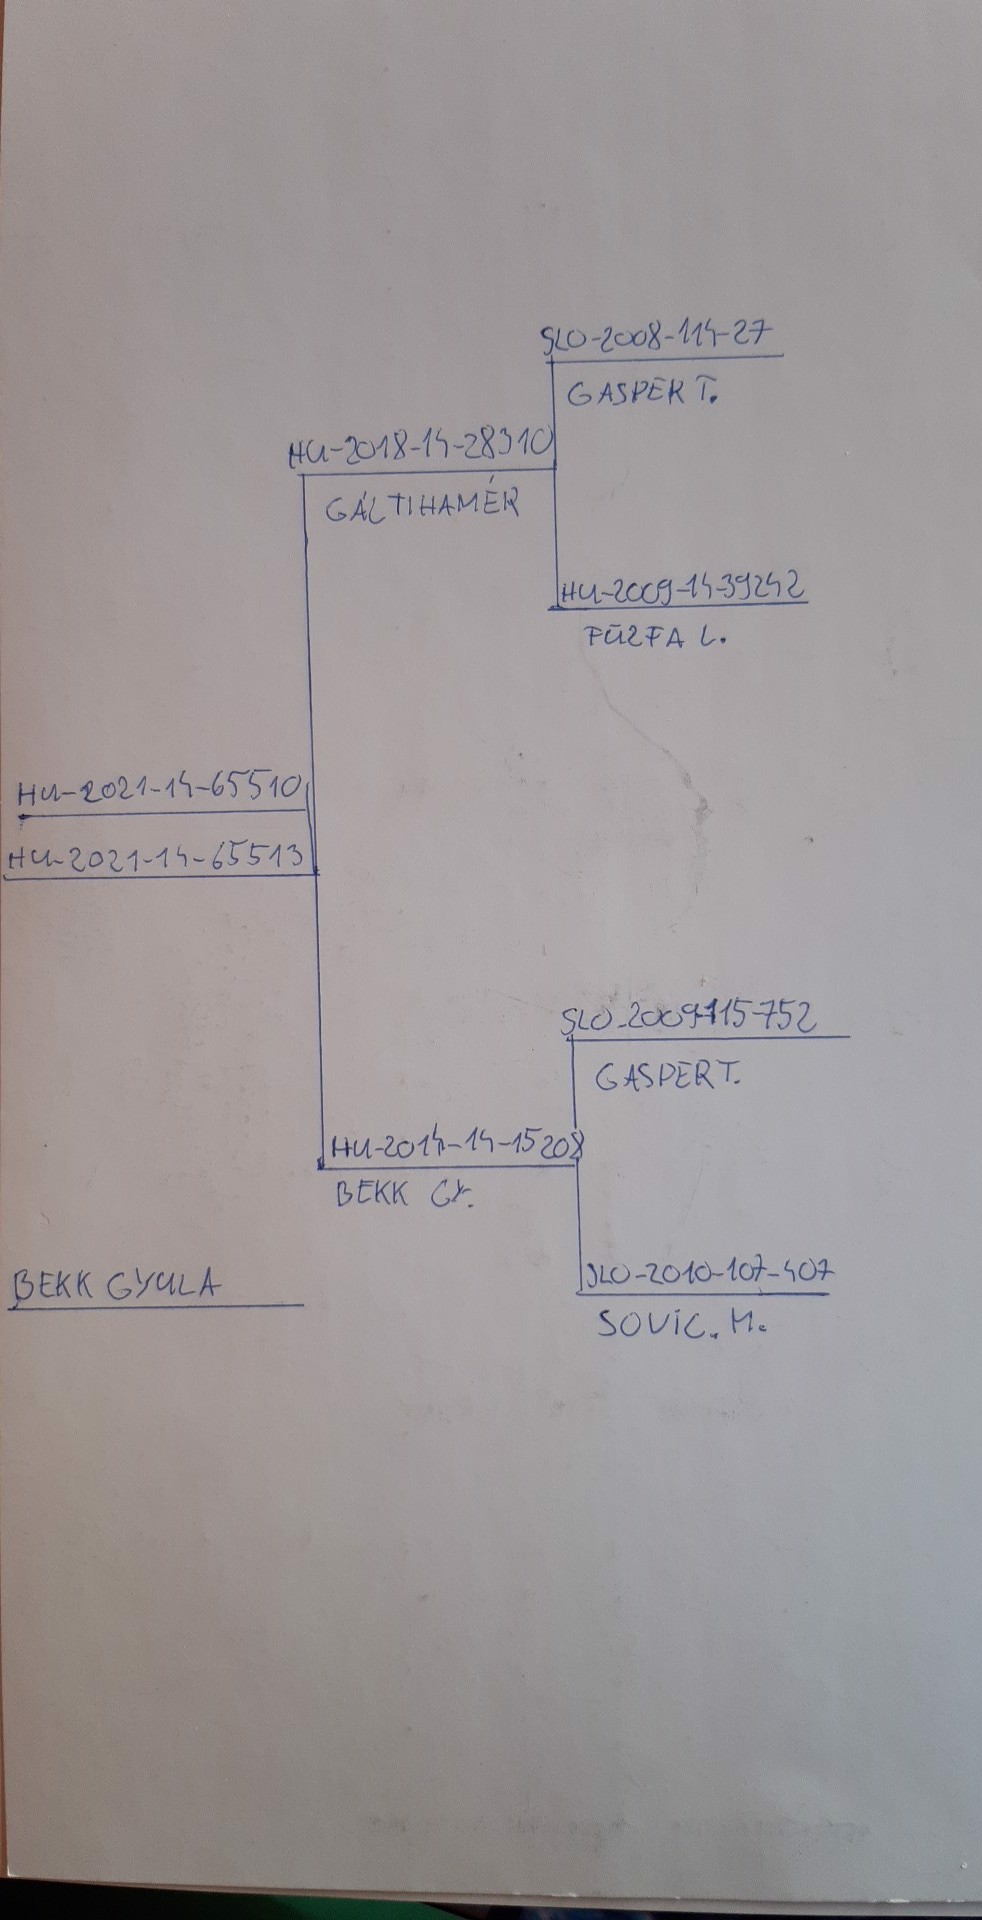 SLO-2008-114-27
GASPER T.
HU-2018-14-28310
GÁLTIHAMÉR
HU-2009-14-39242
FŰZFA L.
HU-2021-14-65510
HU-2021-14-65513
SLO-2009-115-752
GASPER T.
HU-2014-14-15208
BEKK GY.
SLO-2010-107-407
BEKK GYULA
SOVIC. M.